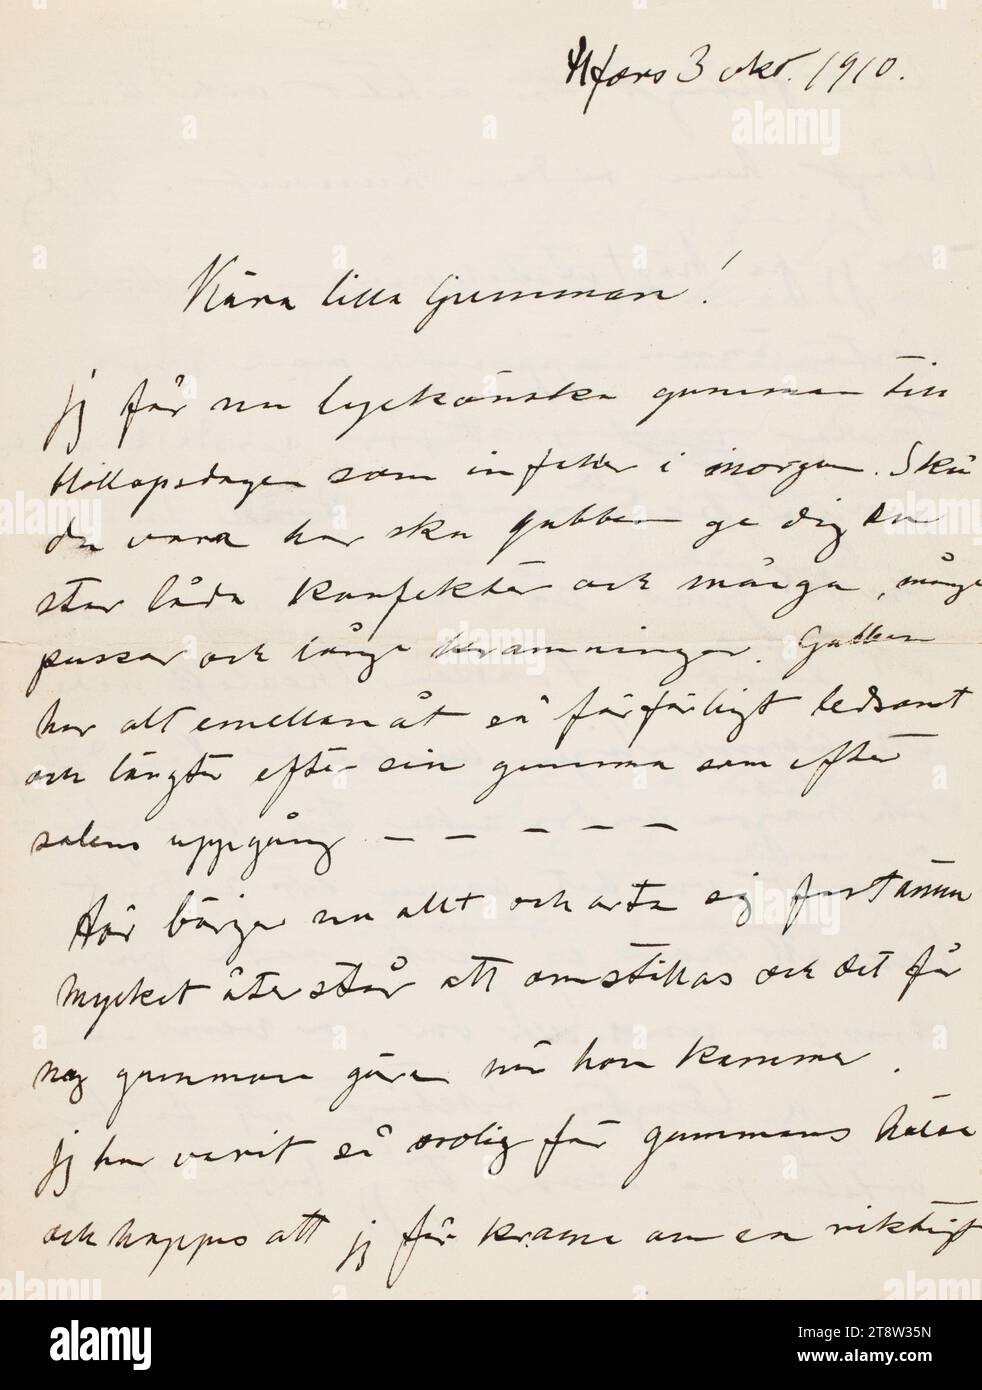 Hfors 3 okt. 1910.
Kära lilla Gumman!
jg får nu lyckönska gumman till
bröllopsdagen som infaller i morgon. Sku
du vara här sku gubben ge dig en
stor låda konfekter och många, många
pussar och långa kramningar. Gubben
har allt emellanåt så förfärligt ledsamt
och längtar efter sin gumma som efter
solens uppgång — — — — —
Här börjar nu allt och arta sig fastän nu
mycket återstår att omstillas och det får
nog gumman göra när hon kommer.
jg har varit så orolig för gummans hälsa
och hoppas att jg får krama om en riktigt
alamy
Image ID: 2T8W35N
www.alamy.com